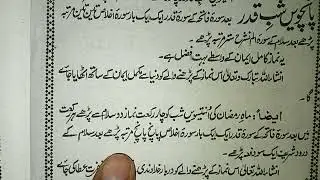 پانچویں شب قدر
بعد سورۃ فاتحہ کے سورۃ قدر ایک ایک بار سورۃ اخلاص تین تین مرتبہ
پڑھے بعد سلام کے سورۃ الم نشرح ستر مرتبہ پڑھے۔
یہ نماز کامل ایمان کے واسطے بہت افضل ہے۔
انشاء اللہ تبارک و تعالیٰ اس نماز کے پڑھنے والے کو دنیا سے مکمل ایمان کے ساتھ اٹھایا جائے
گا۔
ایضاً: ماہ رمضان کی انتیسویں شب کو چار رکعت نماز دو سلام سے پڑھے ہر رکعت
میں بعد سورۃ فاتحہ کے سورۃ قدر ایک ایک بار سورۃ اخلاص پانچ پانچ مرتبہ پڑھے بعد سلام کے
درود شریف ایک سو دفعہ پڑھے۔
انشاء اللہ تعالیٰ اس نماز کے پڑھنے والے کو دربار خداوندی عطا کی جائے